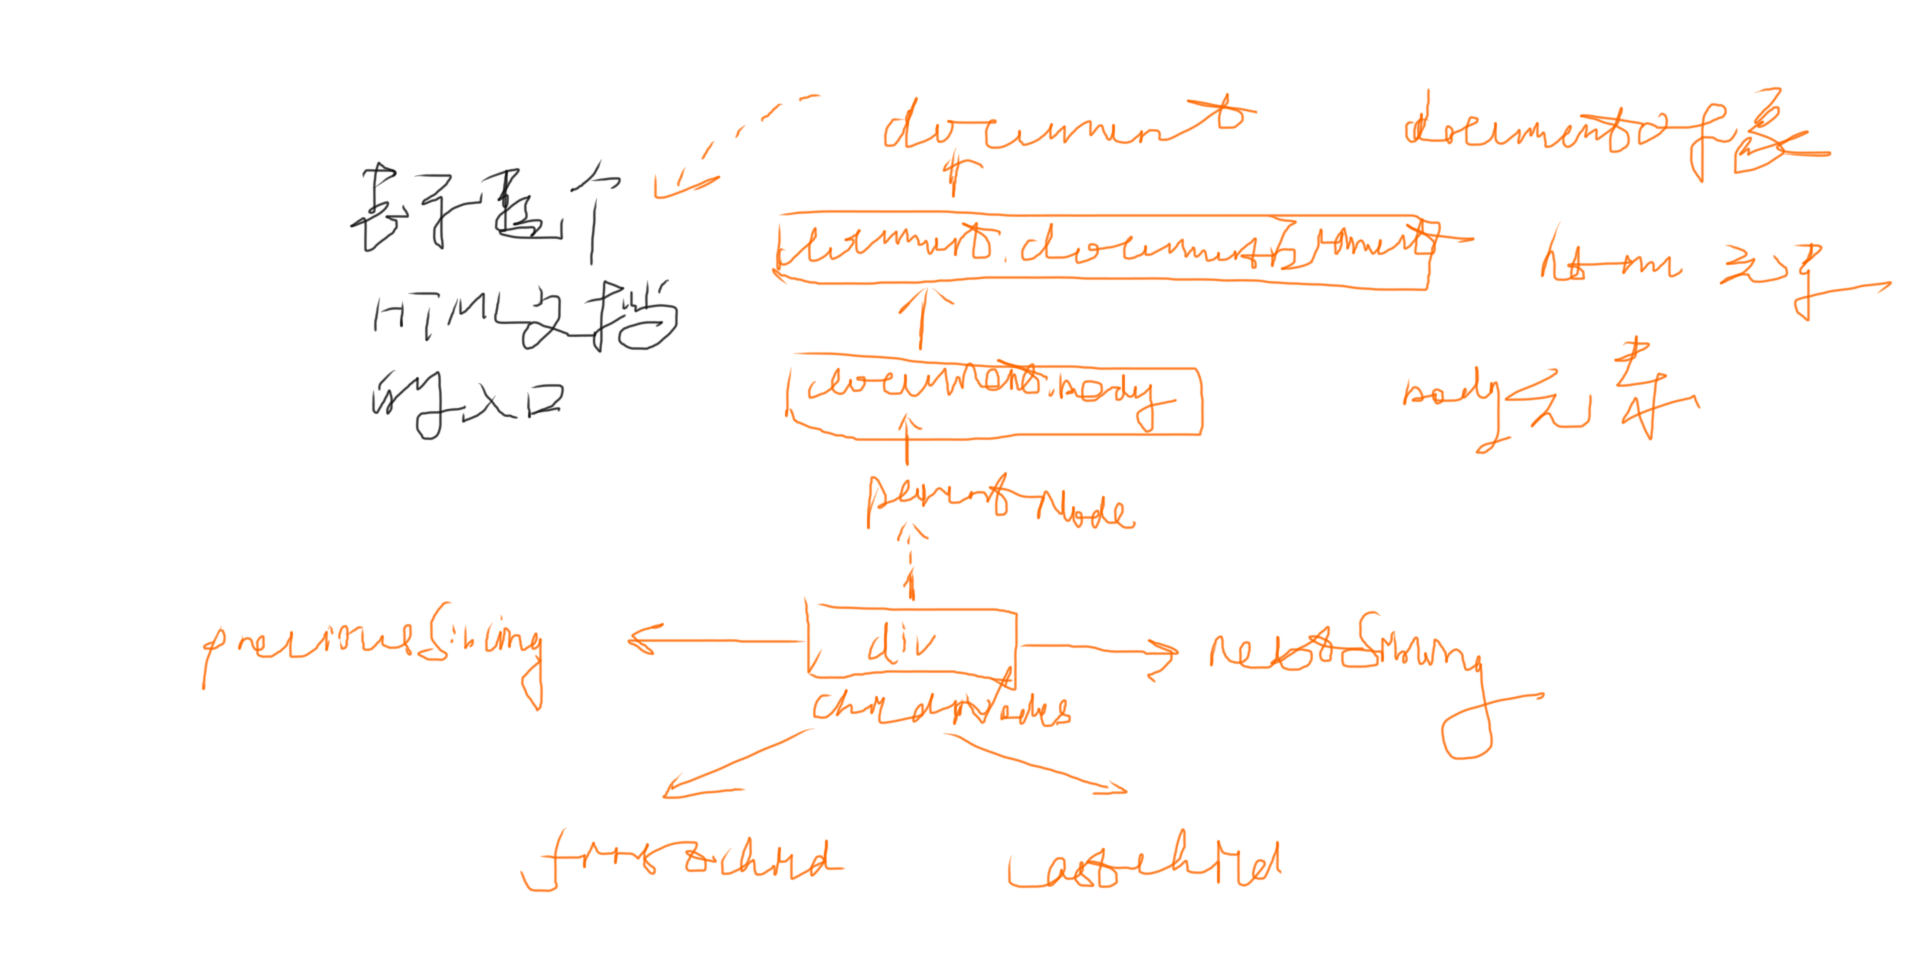 document document对象
表示整个
document.documentElement html元素
HTML文档
document.body body元素
的入口
parentNode
previousSibling div nextSibling
childNodes
firstchild Lastchild